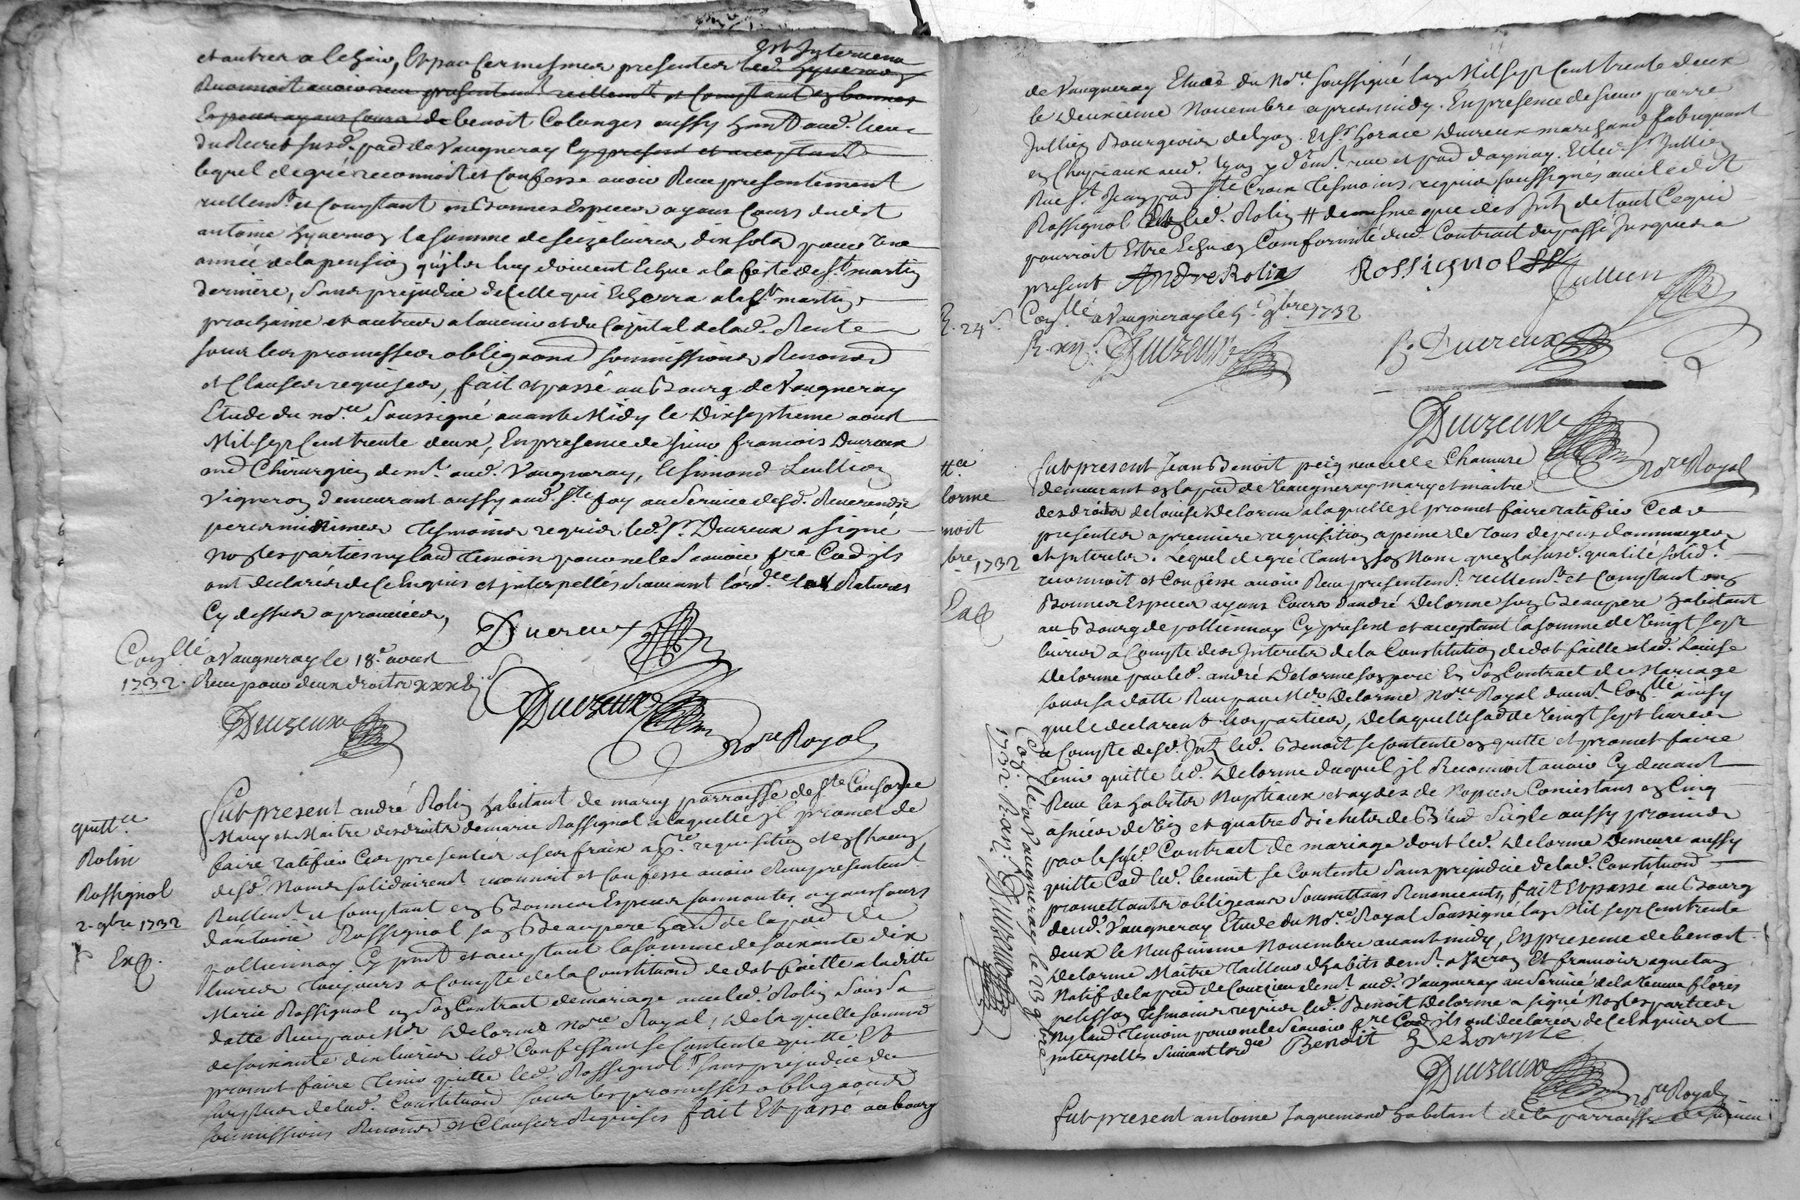 et autres a Echoir, Et par ces mesmes presentes Est Intervenu
Reconnoit avoir receu presentemt reellemt et Comptant en bonnes
Especes ayans Cours de benoit Colonges aussy habitt aud. lieu
du Recret susd. psse de Vaugneray Cy present et acceptant
lequel de gré reconnoit et Confesse avoir Receu presentement
reellemt et Comptant en Bonnes Especes ayans Cours dudit
antoine hyvernon la somme de seize livres dix sols pour une
année de la pension qu'ils luy doivent Echue a la feste de St martin
derniere, sans prejudice de Celle qui Echerra a la St martin
prochaine et autres a l'avenir et du Capital de lad. Rente
sous les promesses obligaons soumissions Renonons
et Clauses requises, fait et passé au Bourg de Vaugneray
Etude du nore Soussigné avant Midy le Dixseptieme aoust
Mil sept Cent trente deux, En presence de sieur francois Ducreux
md Chirurgien demt aud. Vaugneray, &
Vigneron demeurant aussy aud. Ste foy au Service desd. Reverends
peres minimes Tesmoins requis led. Sr. Ducreux a signé
Non les parties ny laud. Temoin pour ne le Scavoir fre Co'd ils
ont declarés de Ce Enquis et Interpellés suivant l'ordce Ratures
Cy dessus aprouvées,
Ducreux
Conllé a Vaugneray le 18e aoust
1732. Receu pour deux droits
Ducreux
Ducreux
Nore Royal
quittce
Rolin
Rossignol
2 9bre 1732
Exp.
fut present andré Rolin habitant de marcy parroisse de Ste Consorce
Mary et Maitre des droits de marie Rossignol a laquelle il promet de
faire ratifier Ces presentes a ses frais a pre requisition et en Chacun
desd. Noms solidairemt reconnoit et Confesse avoir Receu presentemt
Reellemt et Comptant en Bonnes Especes sonnantes, ayans cours
d'antoine Rossignol son Beaupere habitt de la psse de
pollionnay Cy present et acceptant la somme de soixante dix
livres Toujours a Compte de la Constitution de dot faitte a ladite
Marie Rossignol en son Contrat de mariage avec led. Rolin sous sa
datte Receu par Me Delorme nore Royal, de laquelle somme
de soixante dix livres led. Confessant se Contente quitte Et
promet faire Tenir quitte led. Rossignol sans prejudice du
surplus de lad. Constitution sous les promesses obligaons
soumissions Renonons et Clauses Requises fait Et passé au bourg
de Vaugneray Etude du nore soussigné lan Mil sept Cent trente deux
le deuxieme Novembre apres midy. En presence de sieur pierre
Jullien Bourgeois de Lyon. Et Sr horace Ducreux marchand fabriquant
en Chapeaux aud. Lyon y demt rue et psse d'aynay. Et led. Sr Jullien
Rue St Jean psse Ste Croix Tesmoins requis soussignés avec ledit
Rossignol et led. Rolin # de mesme que des Intz de tout Ce qui
pourroit Estre Echu en Comformité dud. Contrat du passé Jusques a
present André Rolin Rossignol Jullien
R. 24s
Conllé a Vaugneray le 5e 9bre 1732
R. xijs. Ducreux
h. Ducreux
Ducreux
Nore Royal
ttce
lorme
noit
bre 1732
Exp
fut present Jean Benoit peigneur de Chanvre
demeurant en la psse de Vaugneray mary et maitre
des droits de louise Delorme a laquelle il promet faire ratifier Ces
presentes a premiere requisition a peine de Tous depens dommages
et Interets. Lequel de gré Tant en son Nom que en la susd. qualité solid.t
reconnoit et Confesse avoir Receu presentemt reellemt et Comptant en
Bonnes Especes ayans Cours d'andré Delorme son Beaupere habitant
au Bourg de pollionnay Cy present et acceptant la somme de Vingt sept
livres a Compte des Interets de la Constitution de dot faitte a lad. Louise
Delorme par led. andré Delorme son pere En son Contrat de Mariage
sous sa datte Receu par Me Delorme Nore Royal duemt Conllé ainsy
que le declarent les parties, de laquelle somme de Vingt sept livres
a Compte desd. Intz led. Benoit se Contente en quitte et promet faire
Tenir quitte led. Delorme duquel il Reconnoit avoir Cy devant
Receu les habits Nuptiaux et aydes de Nopces Consistans en Cinq
asnées de Vin et quatre Bichets de Bled Seigle aussy promis
par le susd. Contrat de mariage dont led. Delorme Demeure aussy
quitte Co'd led. benoit se Contente Sans prejudice de lad. Constitution
promettants obligeans soumettans Renonceants, fait Et passé au Bourg
dud. Vaugneray Etude du Nore Royal Soussigné lan Mil sept Cent trente
deux le Neufvieme Novembre avant midy, En presence de benoit
Delorme Maitre Tailleur d'habits demt a Vaize Et francois aguetan
Natif de la psse de Courzieu demt aud. Vaugneray au Service de la Veuve flores
pelisson Tesmoins requis led. Benoit Delorme a signé Non les parties
ny laud. Temoin pour ne le Scavoir fre Co'd ils ont declarés de Ce Enquis et
interpellés suivant lordce Benoit Delorme
Ducreux
Nore Royal
Conllé a Vaugneray le 13 9bre
1732. Ducreux
fut present antoine Jaquemond habitant de la parroisse de